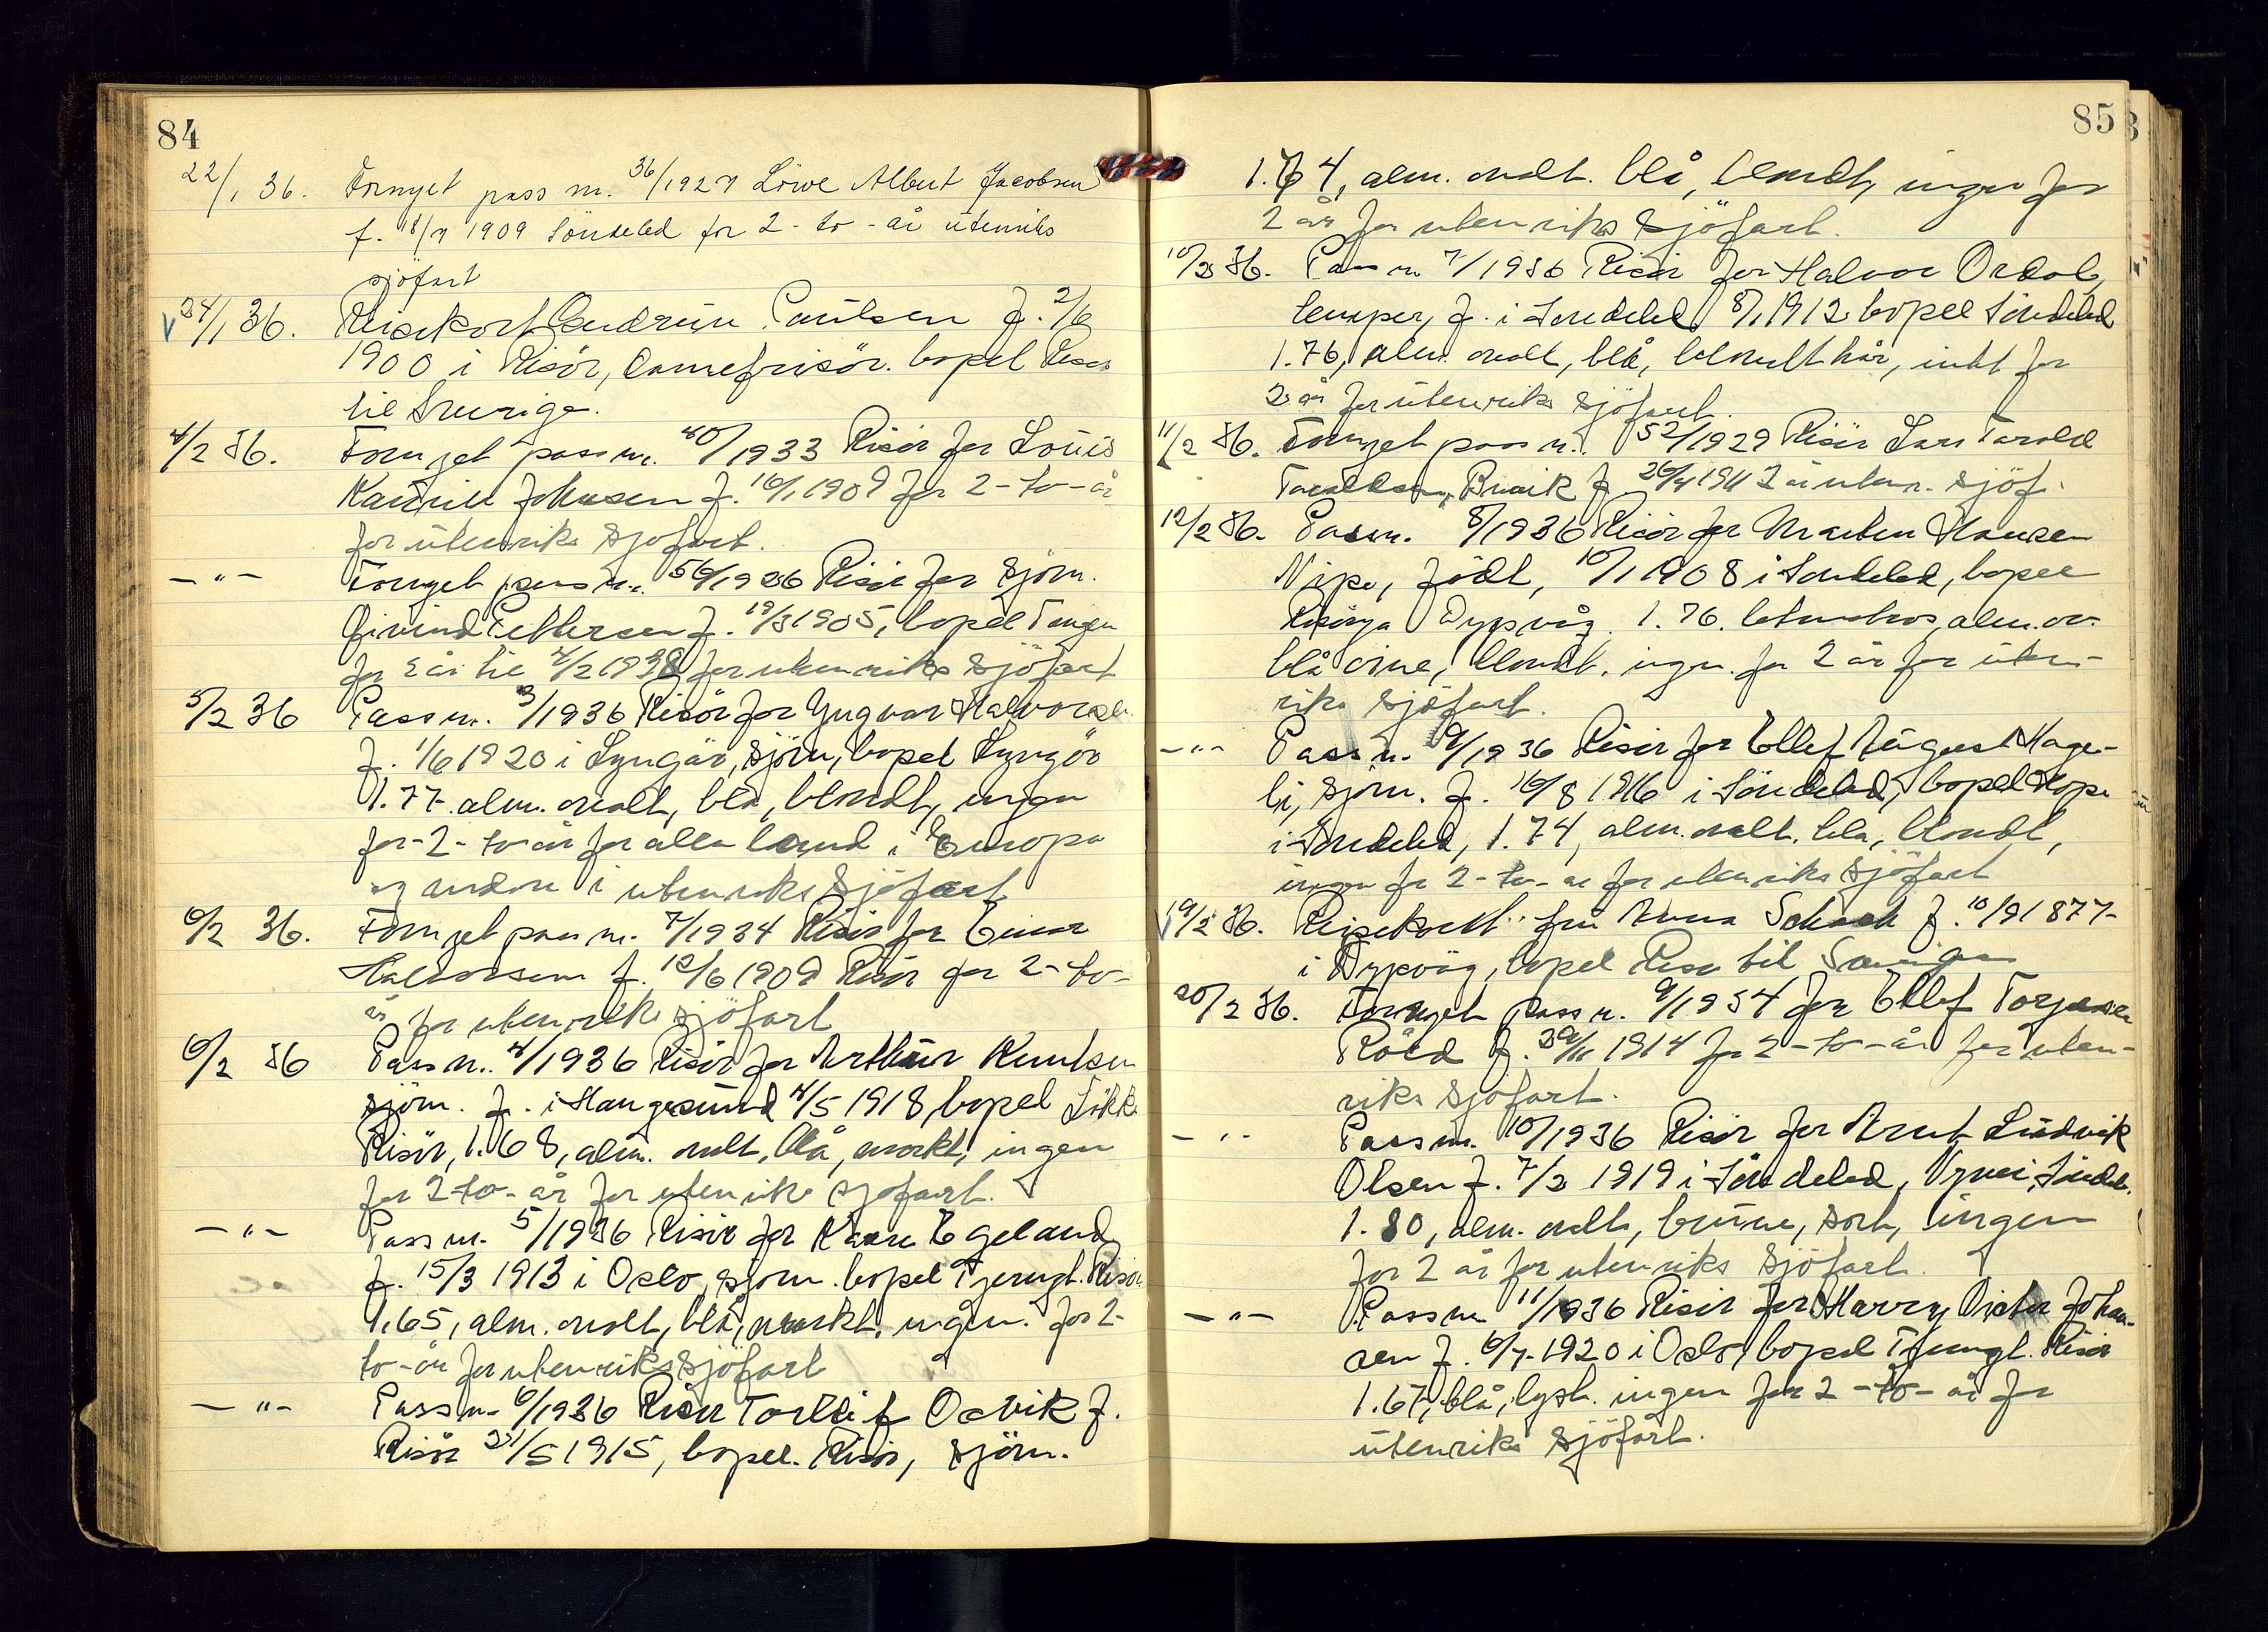 84
22/1 36. Fornyet pass nr. 36/1927 Löwe Albert Jacobsen
f. 18/9 1909 Söndeled for 2 - to - år utenriks
sjöfart
24/1 36. Reisekort Gudrun Paulsen f. 2/6
1900 i Risör, damefrisör. bopel Risör
til Sverige.
4/2 36. Fornyet pass nr. 40/1933 Risör for Louis
Johnsen f. 16/1 1909 for 2 - to - år
for utenriks sjöfart.
— " — Fornyet pass nr. 56/1926 Risör for sjöm.
Öivind Pettersen f. 19/3 1905, bopel Tangen
for 2 år til 4/2 1938 for utenriks sjöfart
5/2 36 Pass nr. 3/1936 Risör for Yngvar Halvorsen
f. 1/6 1920 i Lyngör, sjöm, bopel Lyngör
1.77. alm. ovalt, blå, blondt, ingen
for - 2 - to - år for alle land i Europa
og andre i utenriks sjöfart
6/2 36. Fornyet pass nr. 7/1934 Risör for Einar
Halvorsen f. 12/6 1909 Risör for 2 - to -
år for utenriks sjöfart
6/2 36 Pass nr. 4/1936 Risör for Arthur Knutsen
sjöm. f. i Haugesund 4/5 1918, bopel
Risör, 1.68, alm. ovalt, blå, mörkt, ingen
for 2 - to - år for utenriks sjöfart.
— " — Pass nr. 5/1936 Risör for Kaare Egeland
f. 15/3 1913 i Oslo, sjöm. bopel Tjerngt. Risör
1,65, alm. ovalt, blå, mörkt, ingen. for 2 -
to - år for utenriks sjöfart
— " — Pass nr. 6/1936 Risör Torleif Osvik f.
Risör 21/5 1915, bopel. Risör, sjöm.
85
1.64, alm. ovalt. blå, blondt, ingen for
2 år for utenriks sjöfart.
10/2 36. Pass nr. 7/1936 Risör for Halvor Ordal,
lemper, f. i Söndeled 8/1 1912. bopel Söndeled
1.76, alm. ovalt, blå, blondt hår, intet for
2 år for utenriks sjöfart.
11/2 36. Fornyet pass nr. 52/1929 Risör Lars Tarald
Taraldsen, f. 26/4 1911 2 år utenr. sjöf.
12/2 36. Pass nr. 8/1936 Risör for Marten Hansen
Nipe, födt, 10/1 1908 i Söndeled, bopel
Risöya Dypvåg. 1.76. alm. ov.
blå öine, blondt. ingen. for 2 år for uten-
riks sjöfart.
— " — Pass nr. 9/1936 Risör for Ellef August Hage-
li, sjöm. f. 16/8 1916 i Söndeled, bopel Hope
i Söndeled, 1.74, alm. ovalt. blå, blondt,
ingen for 2 - to - år for utenriks sjöfart
19/2 36. Reisekort fru Anna Schack f. 10/9 1877
i Dypvåg, bopel Risör til Sverige
20/2 36. Fornyet pass nr. 9/1934 for Ellef Torjusen
Röed f. 29/11 1914 for 2 - to - år for uten-
riks sjöfart.
— " — Pass nr. 10/1936 Risör for Arnt Ludvik
Olsen f. 7/2 1919 i Söndeled, Söndel.
1.80, alm. ovalt, brune, sort, ingen
for 2 år for utenriks sjöfart.
— " — Pass nr. 11/1936 Risör for Harry Victor Johan-
sen f. 6/7 - 1920 i Oslo, bopel Tjerngt. Risör
1.67, blå, lyst. ingen for 2 - to - år for
utenriks sjöfart.